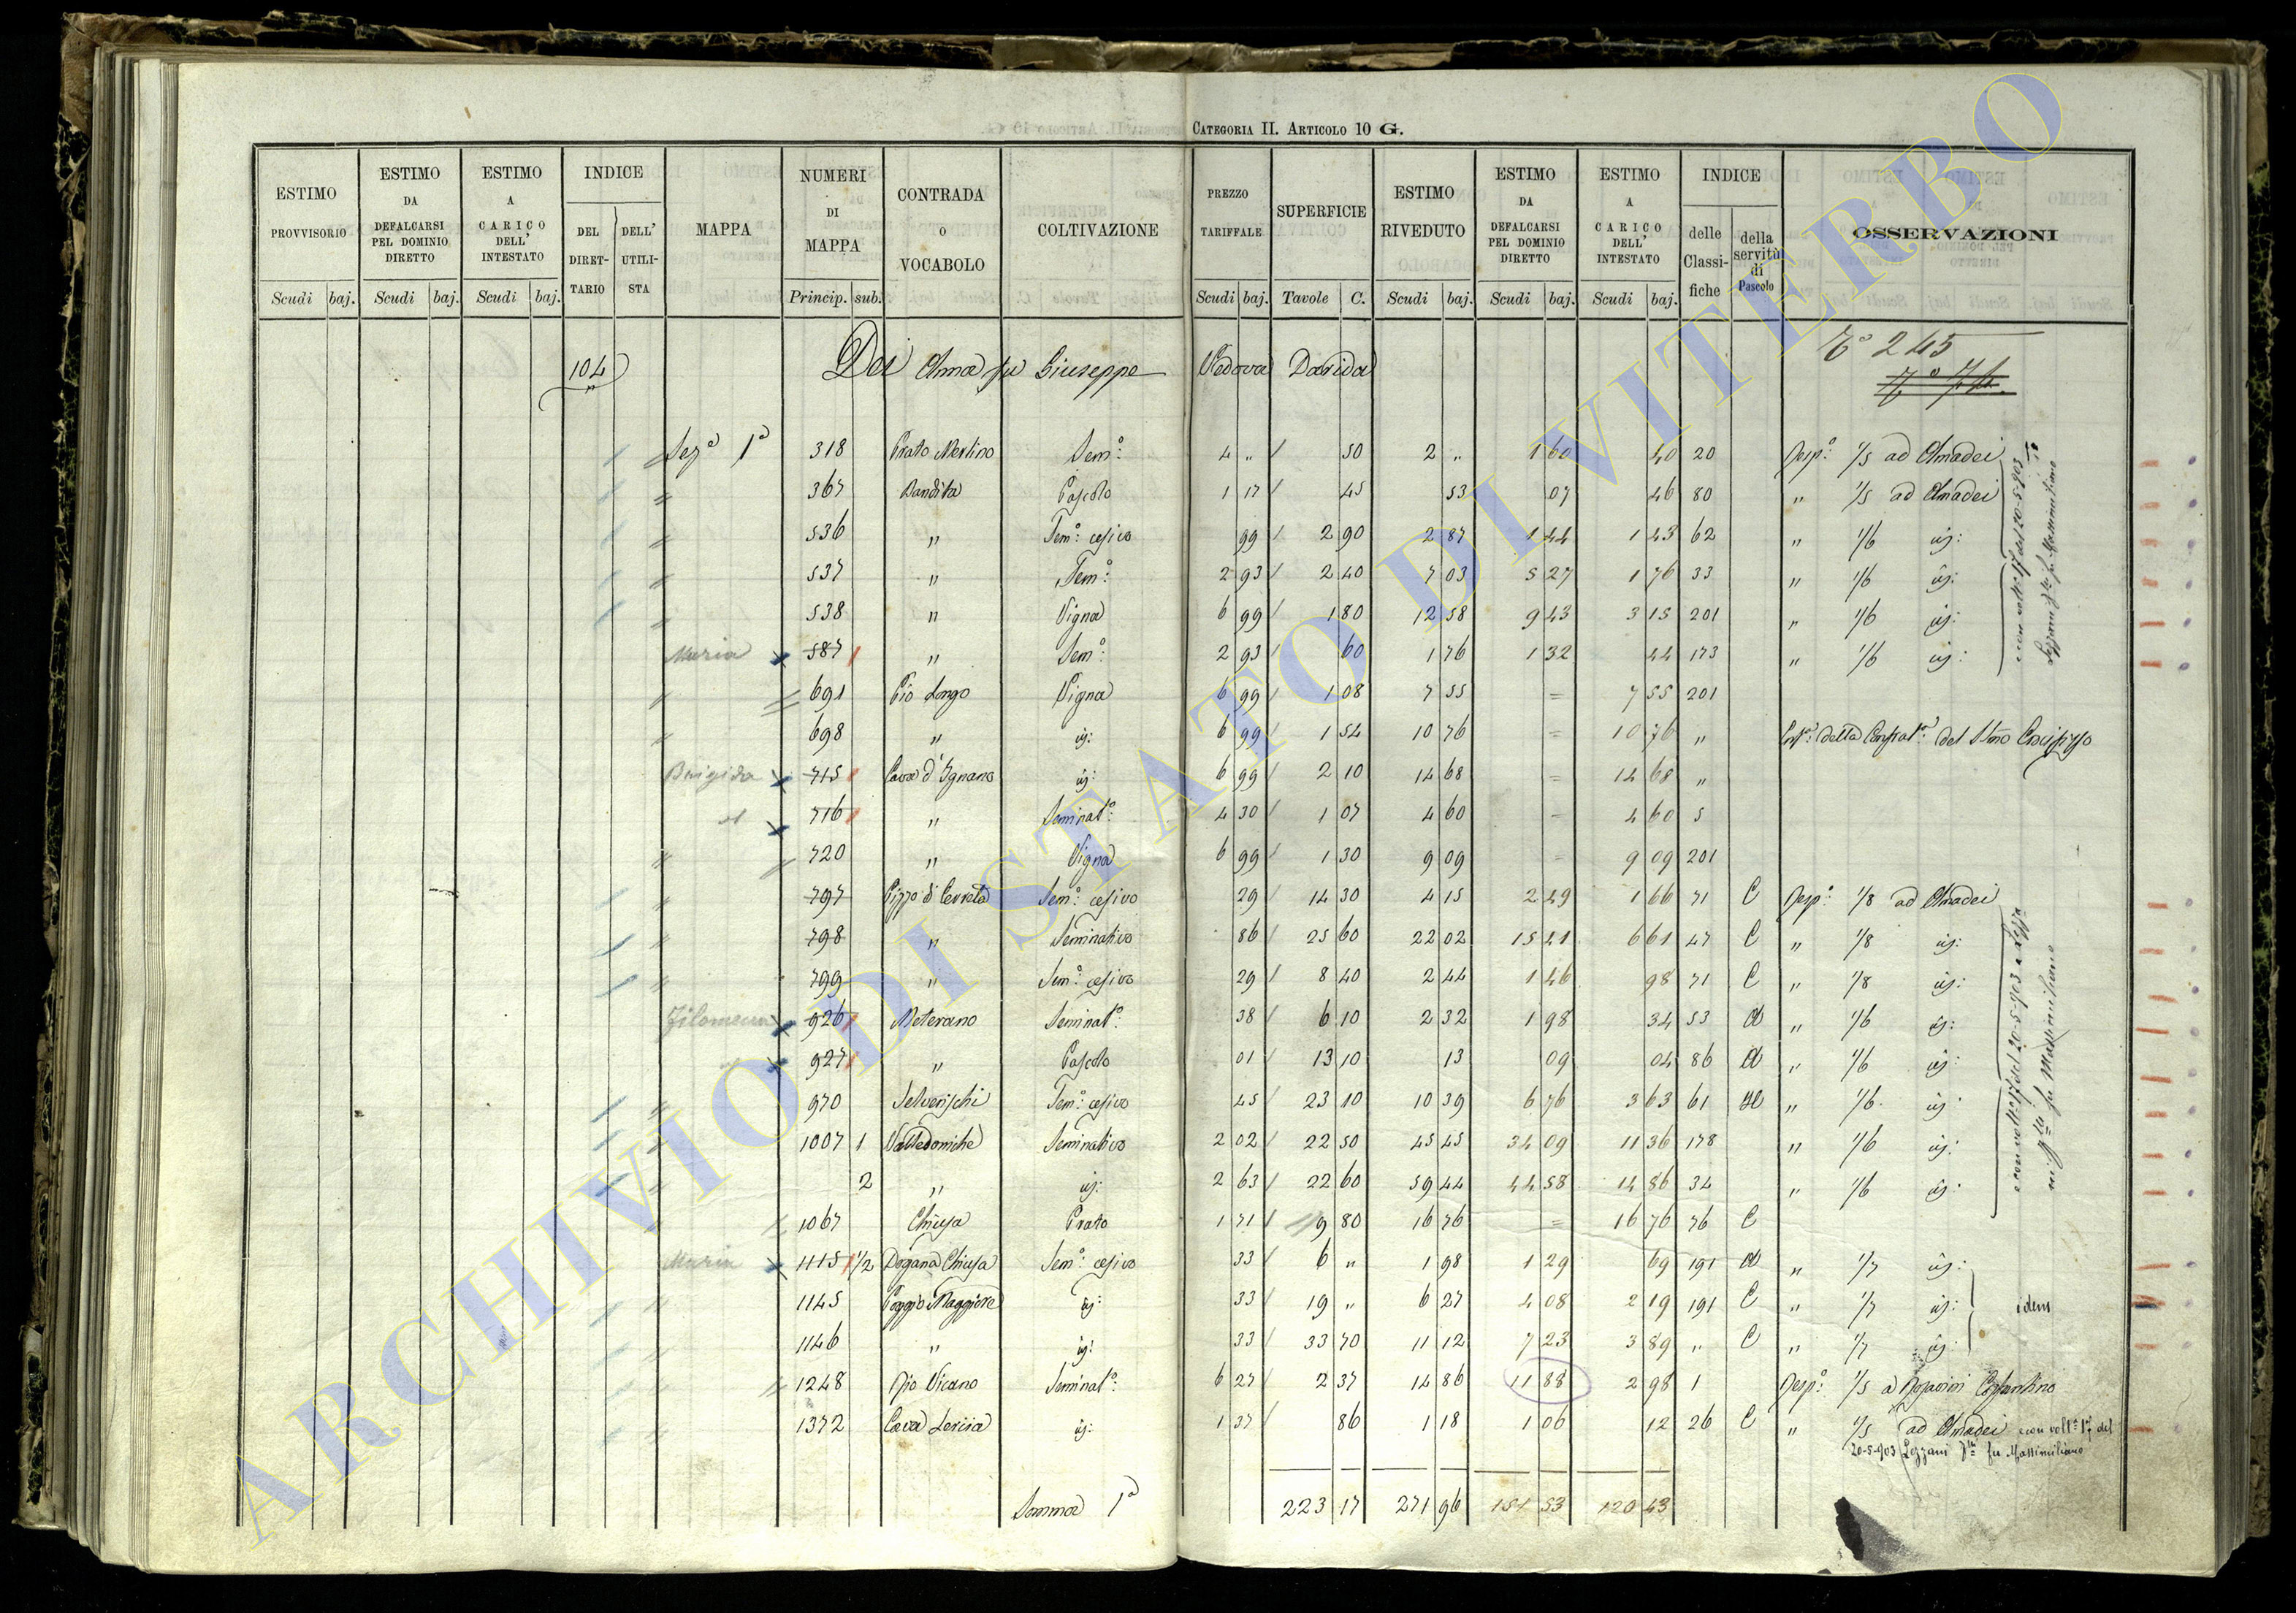 CATEGORIA II. ARTICOLO 10 G.
ESTIMO PROVVISORIO Scudi baj.
ESTIMO DA DEFALCARSI PEL DOMINIO DIRETTO Scudi baj.
ESTIMO A CARICO DELL' INTESTATO Scudi baj.
INDICE DEL DIRET-TARIO DELL' UTILI-STA
MAPPA
NUMERI DI MAPPA Princip. sub.
CONTRADA O VOCABOLO
COLTIVAZIONE
PREZZO TARIFFALE Scudi baj.
SUPERFICIE Tavole C.
ESTIMO RIVEDUTO Scudi baj.
ESTIMO DA DEFALCARSI PEL DOMINIO DIRETTO Scudi baj.
ESTIMO A CARICO DELL' INTESTATO Scudi baj.
INDICE delle Classi-fiche della servitù di Pascolo
OSSERVAZIONI
104 Dei Anna fu Giuseppe Vedova Darida 245
Sez.a 1a 318 Prato Merlino Sem.o 4 " 50 2 " 1 60 40 20 Resp.o 1/5 ad Amadei
367 Bandita Pascolo 1 17 45 53 07 46 80 " 1/5 ad Amadei
536 " Sem.o cesivo 99 2 90 2 87 1 44 1 43 62 " 1/6 id:
537 " Sem.o 2 93 2 40 7 03 5 27 1 76 33 " 1/6 id:
538 " Vigna 6 99 1 80 12 58 9 43 3 15 201 " 1/6 id:
Maria 587 " Sem.o 2 93 60 1 76 1 32 44 173 " 1/6 id:
691 Pio Longo Vigna 6 99 1 08 7 55 = 7 55 201
698 " id: 6 99 1 54 10 76 = 10 76 " della Confrat.a del SSmo Crocifisso
Brigida 715 Cava d'Ignano id: 6 99 2 10 14 68 = 14 68 "
716 " Seminat.o 4 30 1 07 4 60 = 4 60 5
720 " Vigna 6 99 1 30 9 09 = 9 09 201
797 Pizzo di Cerreta Sem.o cesivo 29 14 30 4 15 2 49 1 66 71 C Resp.o 1/8 ad Amadei
798 " Seminativo 86 25 60 22 02 15 41 6 61 47 C " 1/8 id:
799 " Sem.o cesivo 29 8 40 2 44 1 46 98 71 C " 1/8 id:
Filomena 926 Meterano Seminat.o 38 6 10 2 32 1 98 34 53 " 1/6 id:
927 " Pascolo 01 13 10 13 09 04 86 " 1/6 id:
970 Selverischi Sem.o cesivo 45 23 10 10 39 6 76 3 63 61 " 1/6 id:
1007 1 Valledoniche Seminativo 2 02 22 50 45 45 34 09 11 36 178 " 1/6 id:
2 " id: 2 63 22 60 59 44 44 58 14 86 34 " 1/6 id:
1067 Chiusa Prato 1 71 9 80 16 76 = 16 76 76 C
Maria 1115 1/2 Dogana Chiusa Sem.o cesivo 33 6 " 1 98 1 29 69 191 " 1/7 id:
1145 Poggio Maggiore id: 33 19 " 6 27 4 08 2 19 191 C " 1/7 id: idem
1146 " id: 33 33 70 11 12 7 23 3 89 " C " 1/7 id:
1248 Rio Vicano Seminat.o 6 27 2 37 14 86 11 88 2 98 1 Resp.o 1/5 a Costantino
1372 Cava Lerisa id: 1 37 86 1 18 1 06 12 26 C " 1/5 ad Amadei e con volt.a 17 del
20-5-903 Lezzani fu Massimiliano
Somma 1a 223 17 271 96 151 53 120 43
ARCHIVIO DI STATO DI VITERBO